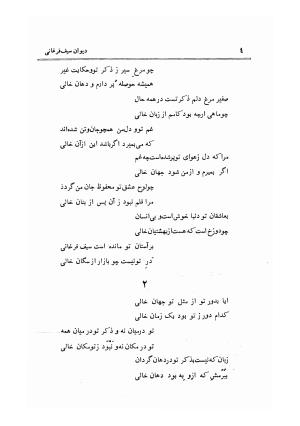 ٤
دیوان سیف فرغانی
چو مرغ سیر ز ذکر تو و حکایت غیر
همیشه حوصله پر دارم و دهان خالی
صفیر مرغ دلم ذکر تست در همه حال
چو ماهی ارچه بود کامم از زبان خالی
غم تو و دل من همچو جان و تن شده‌اند
که می‌بمیرد اگر باشد این از آن خالی
مرا که دل ز هوای تو پر شده‌ست چه غم
اگر بمیرم و از من شود جهان خالی
چو لوح عشق تو محفوظ جان من گردد
مرا قلم نبود ز آن پس از بنان خالی
بعاشقان تو دنیا خوش است و بی‌ایشان
چو دوزخ است که هست از بهشتیان خالی
بر آستان تو مانده است سیف فرغانی
در تو نیست چو بازار از سگان خالی
۲
ایا بدور تو از مثل تو جهان خالی
کدام دور ز تو بود یک زمان خالی
تو در میان نه و ذکر تو در میان همه
تو در مکان نه و نبود ز تو مکان خالی
زبان که نیست بذکر تو در دهان گردان
ببرمش که ازو به بود دهان خالی